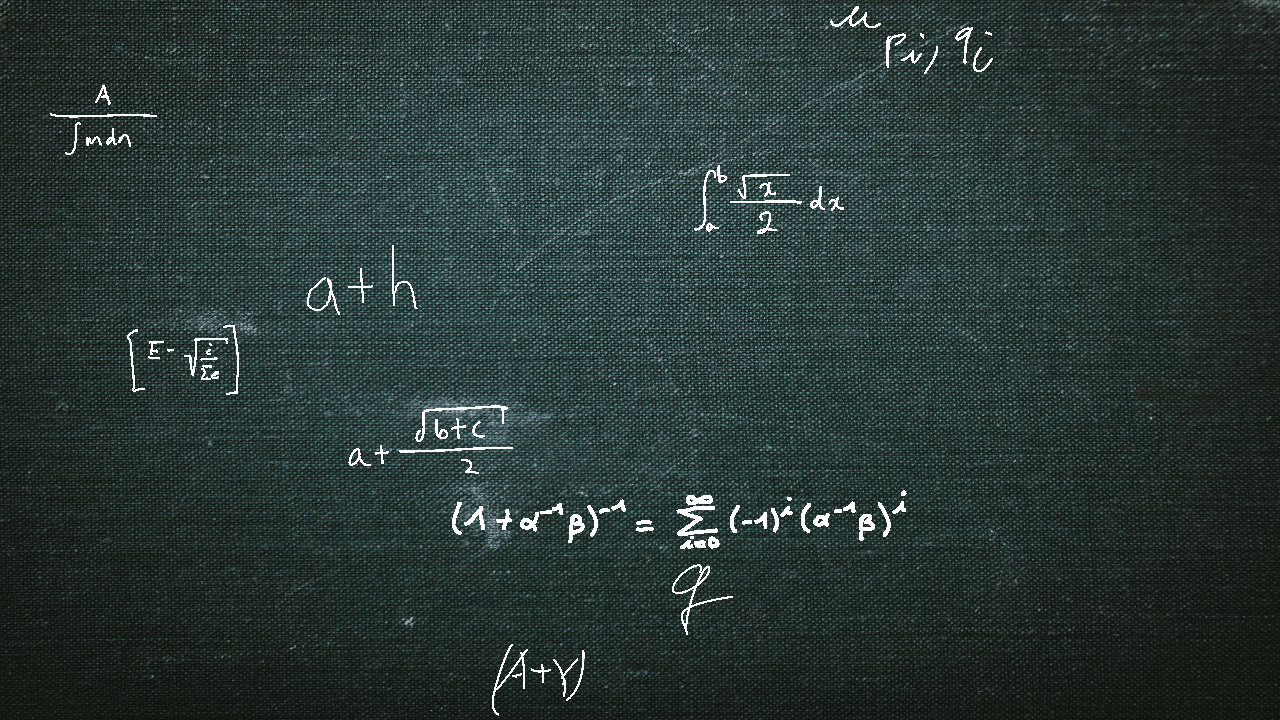 μ_{p_i, q_i}
\frac{A}{\int m dn}
\int_a^b \frac{\sqrt{x}}{2} dx
a+h
[E-\sqrt{\frac{i}{\Sigma e}}]
a+\frac{\sqrt{b+c}}{2}
(1+α^{-1}β)^{-1} = \sum_{i=0}^{∞} (-1)^i (α^{-1}β)^i
q
(A+Y)